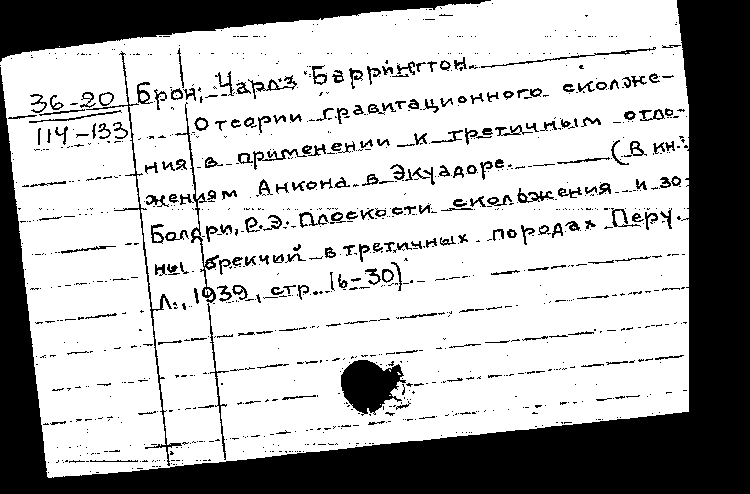 36-20
114-133
Брон, Чарлз Баррингтон.
О теории гравитационного скольже-
ния в применении к третичным отло-
жениям Анкона в Экуадоре. (В кн.:
Болдри, Р.Э. Плоскости скольжения и зо-
ны брекчий в третичных породах Перу.
Л., 1939, стр. 16-30).